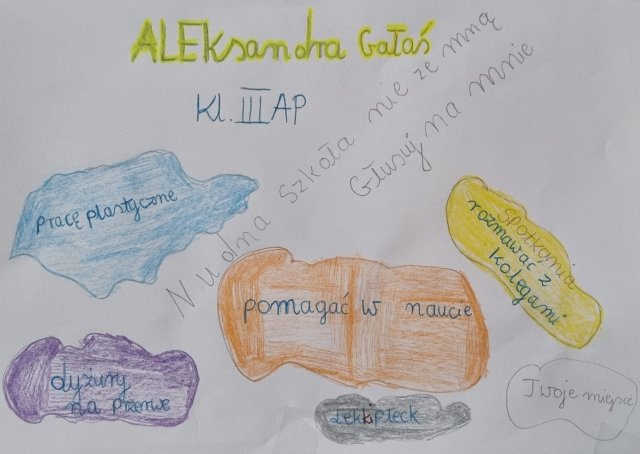 ALEksandra Gałaś
Kl. III AP
Nudna Szkoła nie ze mną
Głusuj na mnie
pracę plastyczne
Spotkania
rozmawać z
kolegami
pomagać w naucie
dyżury
na przerwe
Lekki pleck
Twoje miejsce